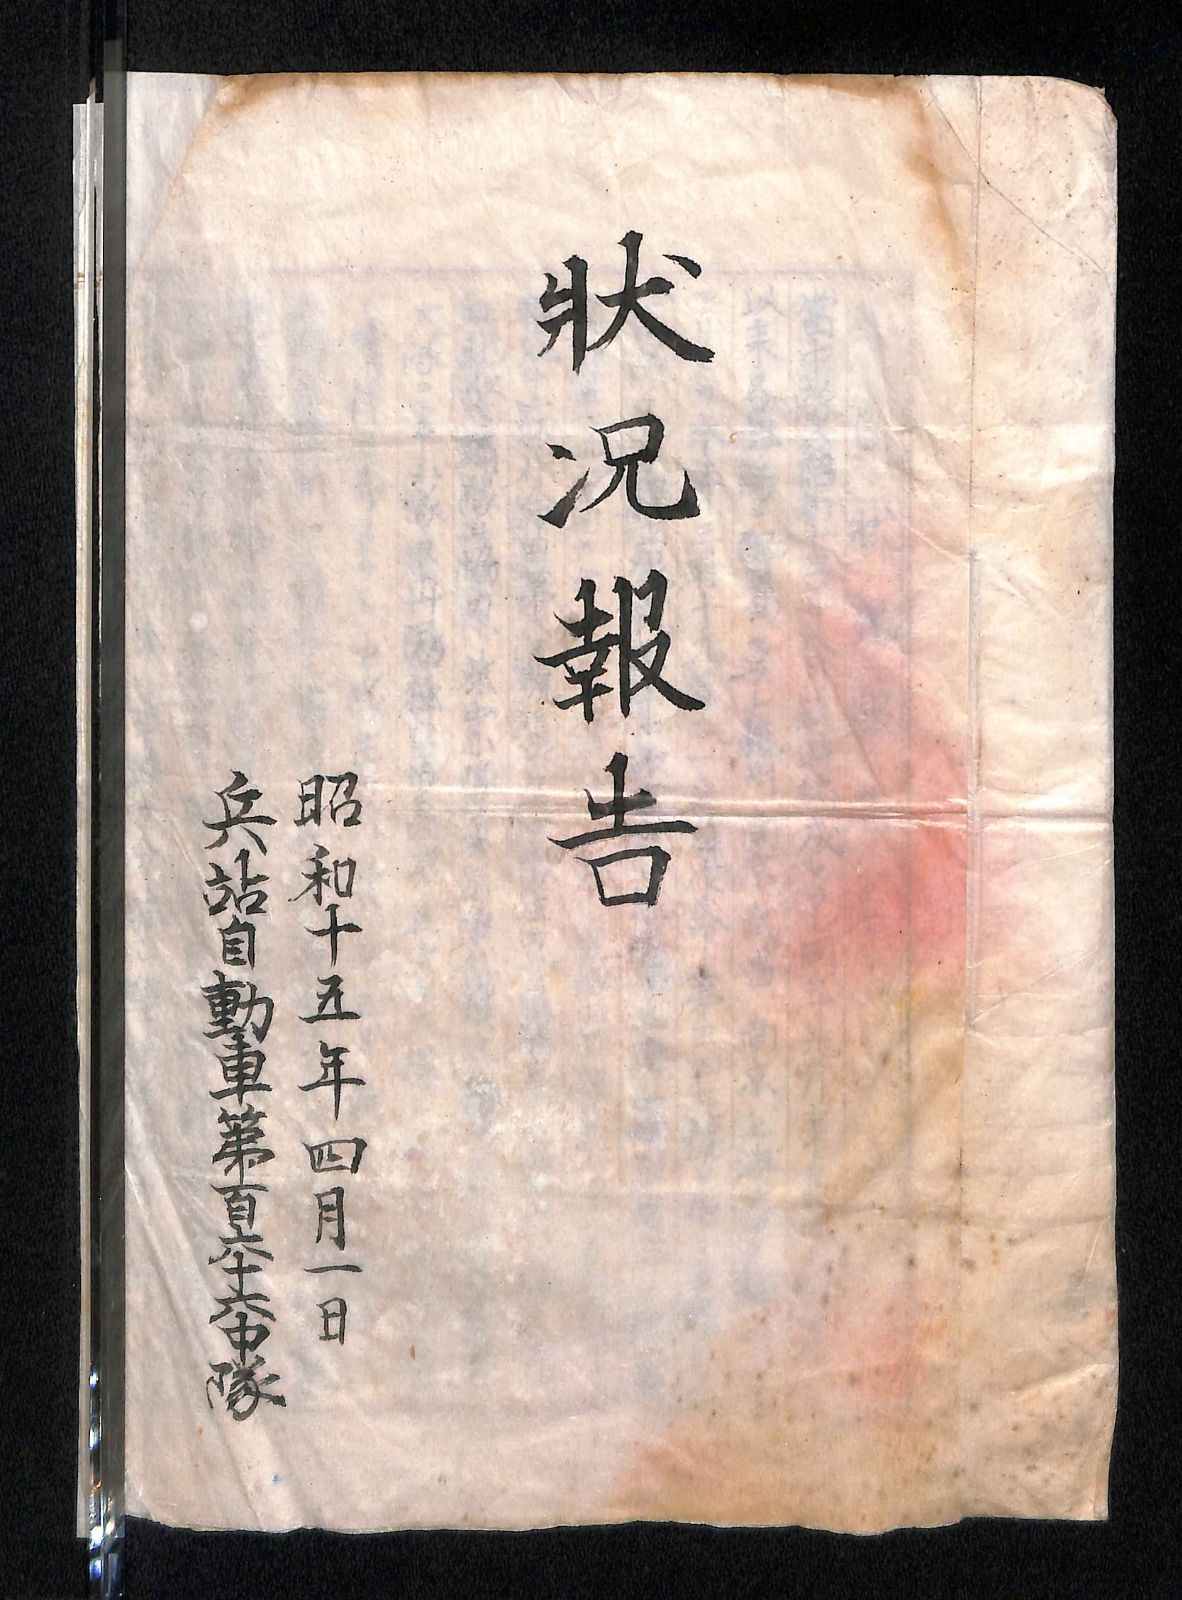 狀況報告
昭和十五年四月一日
兵站自動車第百六十六中隊